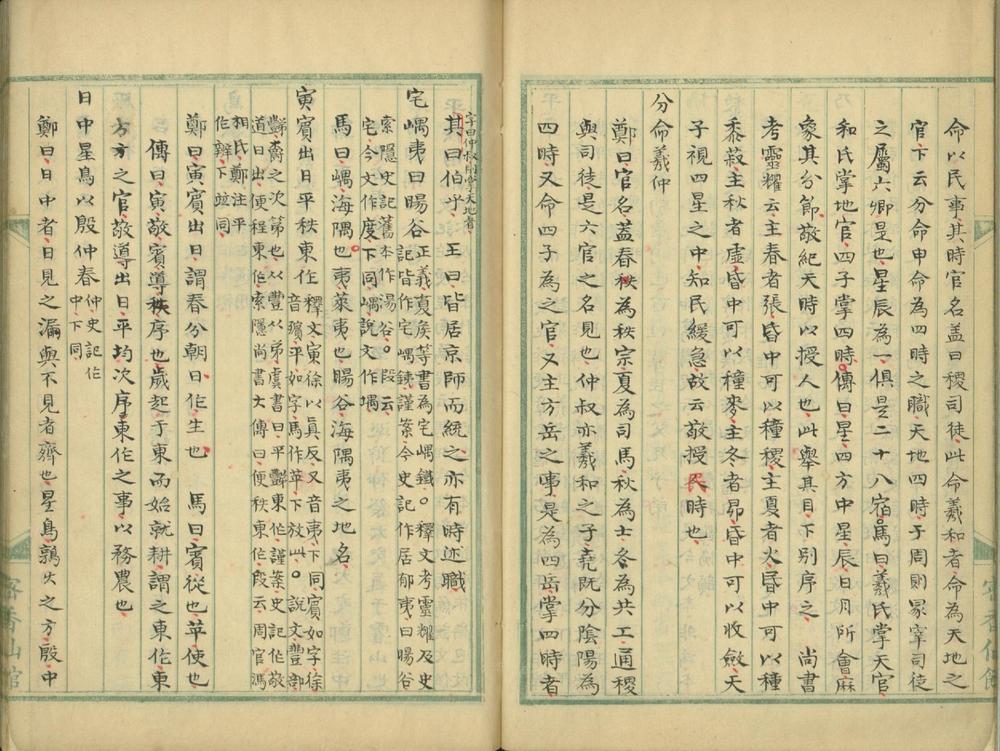 命以民事其時官名盖曰稷司徒此命羲和者命為天地之
官下云分命申命為四時之職天地四時于周則冢宰司徒
之屬六卿是也星辰為一俱是二十八宿馬曰羲氏掌天官
和氏掌地官四子掌四時傳曰星四方中星辰日月所會厤
象其分節敬紀天時以授人也此舉其目下別序之尚書
考靈耀云主春者張昏中可以種稷主夏者火昏中可以種
黍菽主秋者虛昏中可以種麥主冬者昴昏中可以收斂天
子視四星之中知民緩急故云敬授民時也
分命羲仲
鄭曰官名蓋春秩為秩宗夏為司馬秋為士冬為共工通稷
與司徒是六官之名見也仲叔亦羲和之子堯既分陰陽為
四時又命四子為之官又主方岳之事是為四岳掌四時者
字曰仲叔則掌天地者
其曰伯乎王曰皆居京師而統之亦有時述職
宅嵎夷曰暘谷正義夏矦等書為宅嵎鐵○釋文考靈耀及史
記皆作宅嵎銕謹案今史記作居郁夷曰暘谷
索隱史記舊本作湯谷○段云
宅今文作度下同嵎說文作堣
馬曰嵎海隅也夷萊夷也暘谷海隅夷之地名
寅賓出日平秩東作釋文寅徐以真反又音夷下同賓如字徐
音殯平如字馬作苹下放此○說文豐部
豑爵之次第也从豐从弟虞書曰平豑東作謹案史記作敬
道日出便程東作索隱尚書大傳曰便秩東作段云周官馮
相氏鄭注平
作辨下竝同
鄭曰寅賓出日謂春分朝日作生也　馬曰賓從也苹使也
傳曰寅敬賓導秩序也歲起于東而始就耕謂之東作東
方之官敬導出日平均次序東作之事以務農也
日中星鳥以殷仲春仲史記作
中下同
鄭曰日中者日見之漏與不見者齊也星鳥鶉火之方殷中